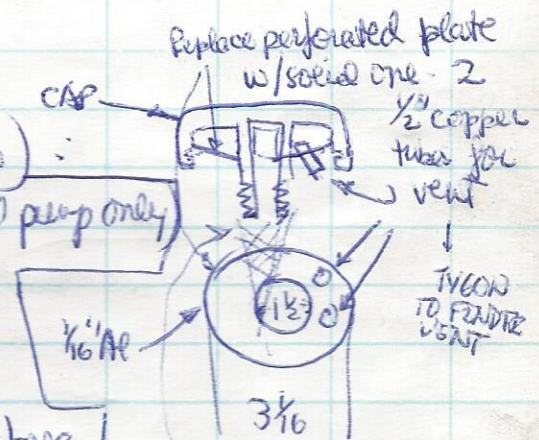 Replace perforated plate
w/solid one - 2
CAP
1/2" copper
tubes for
vent
pump only
TYGON
TO FENDER
VENT
1 1/2
1/16" Al
3 1/16